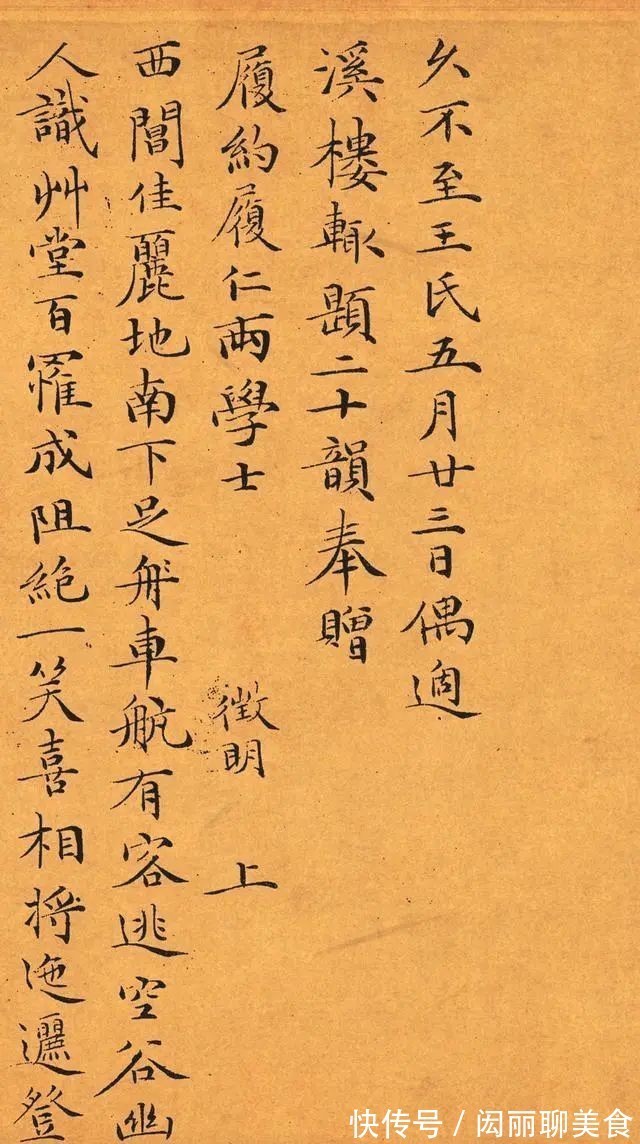 久不至王氏五月廿三日偶過
溪樓輙題二十韻奉贈
履約履仁兩學士　徵明　上
西閶佳麗地南下足舟車航有客逃空谷幽
人識艸堂百罹成阻絶一笑喜相將迤邐登
快传号 / 闳丽聊美食